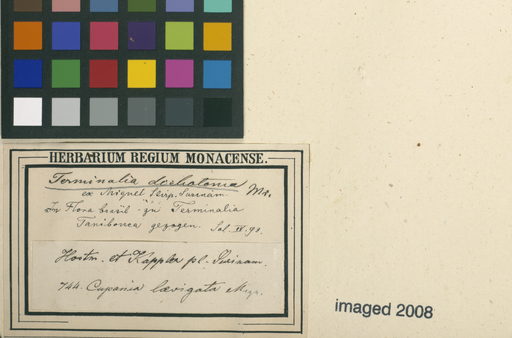 HERBARIUM REGIUM MONACENSE.
Terminalia
ex Miquel Stirp. Surinam.
In Flora brasil. zu Terminalia
Tanibouca gezogen.
Hostm. et Kappler pl. Surinam.
744. Cupania laevigata Miq.
imaged 2008